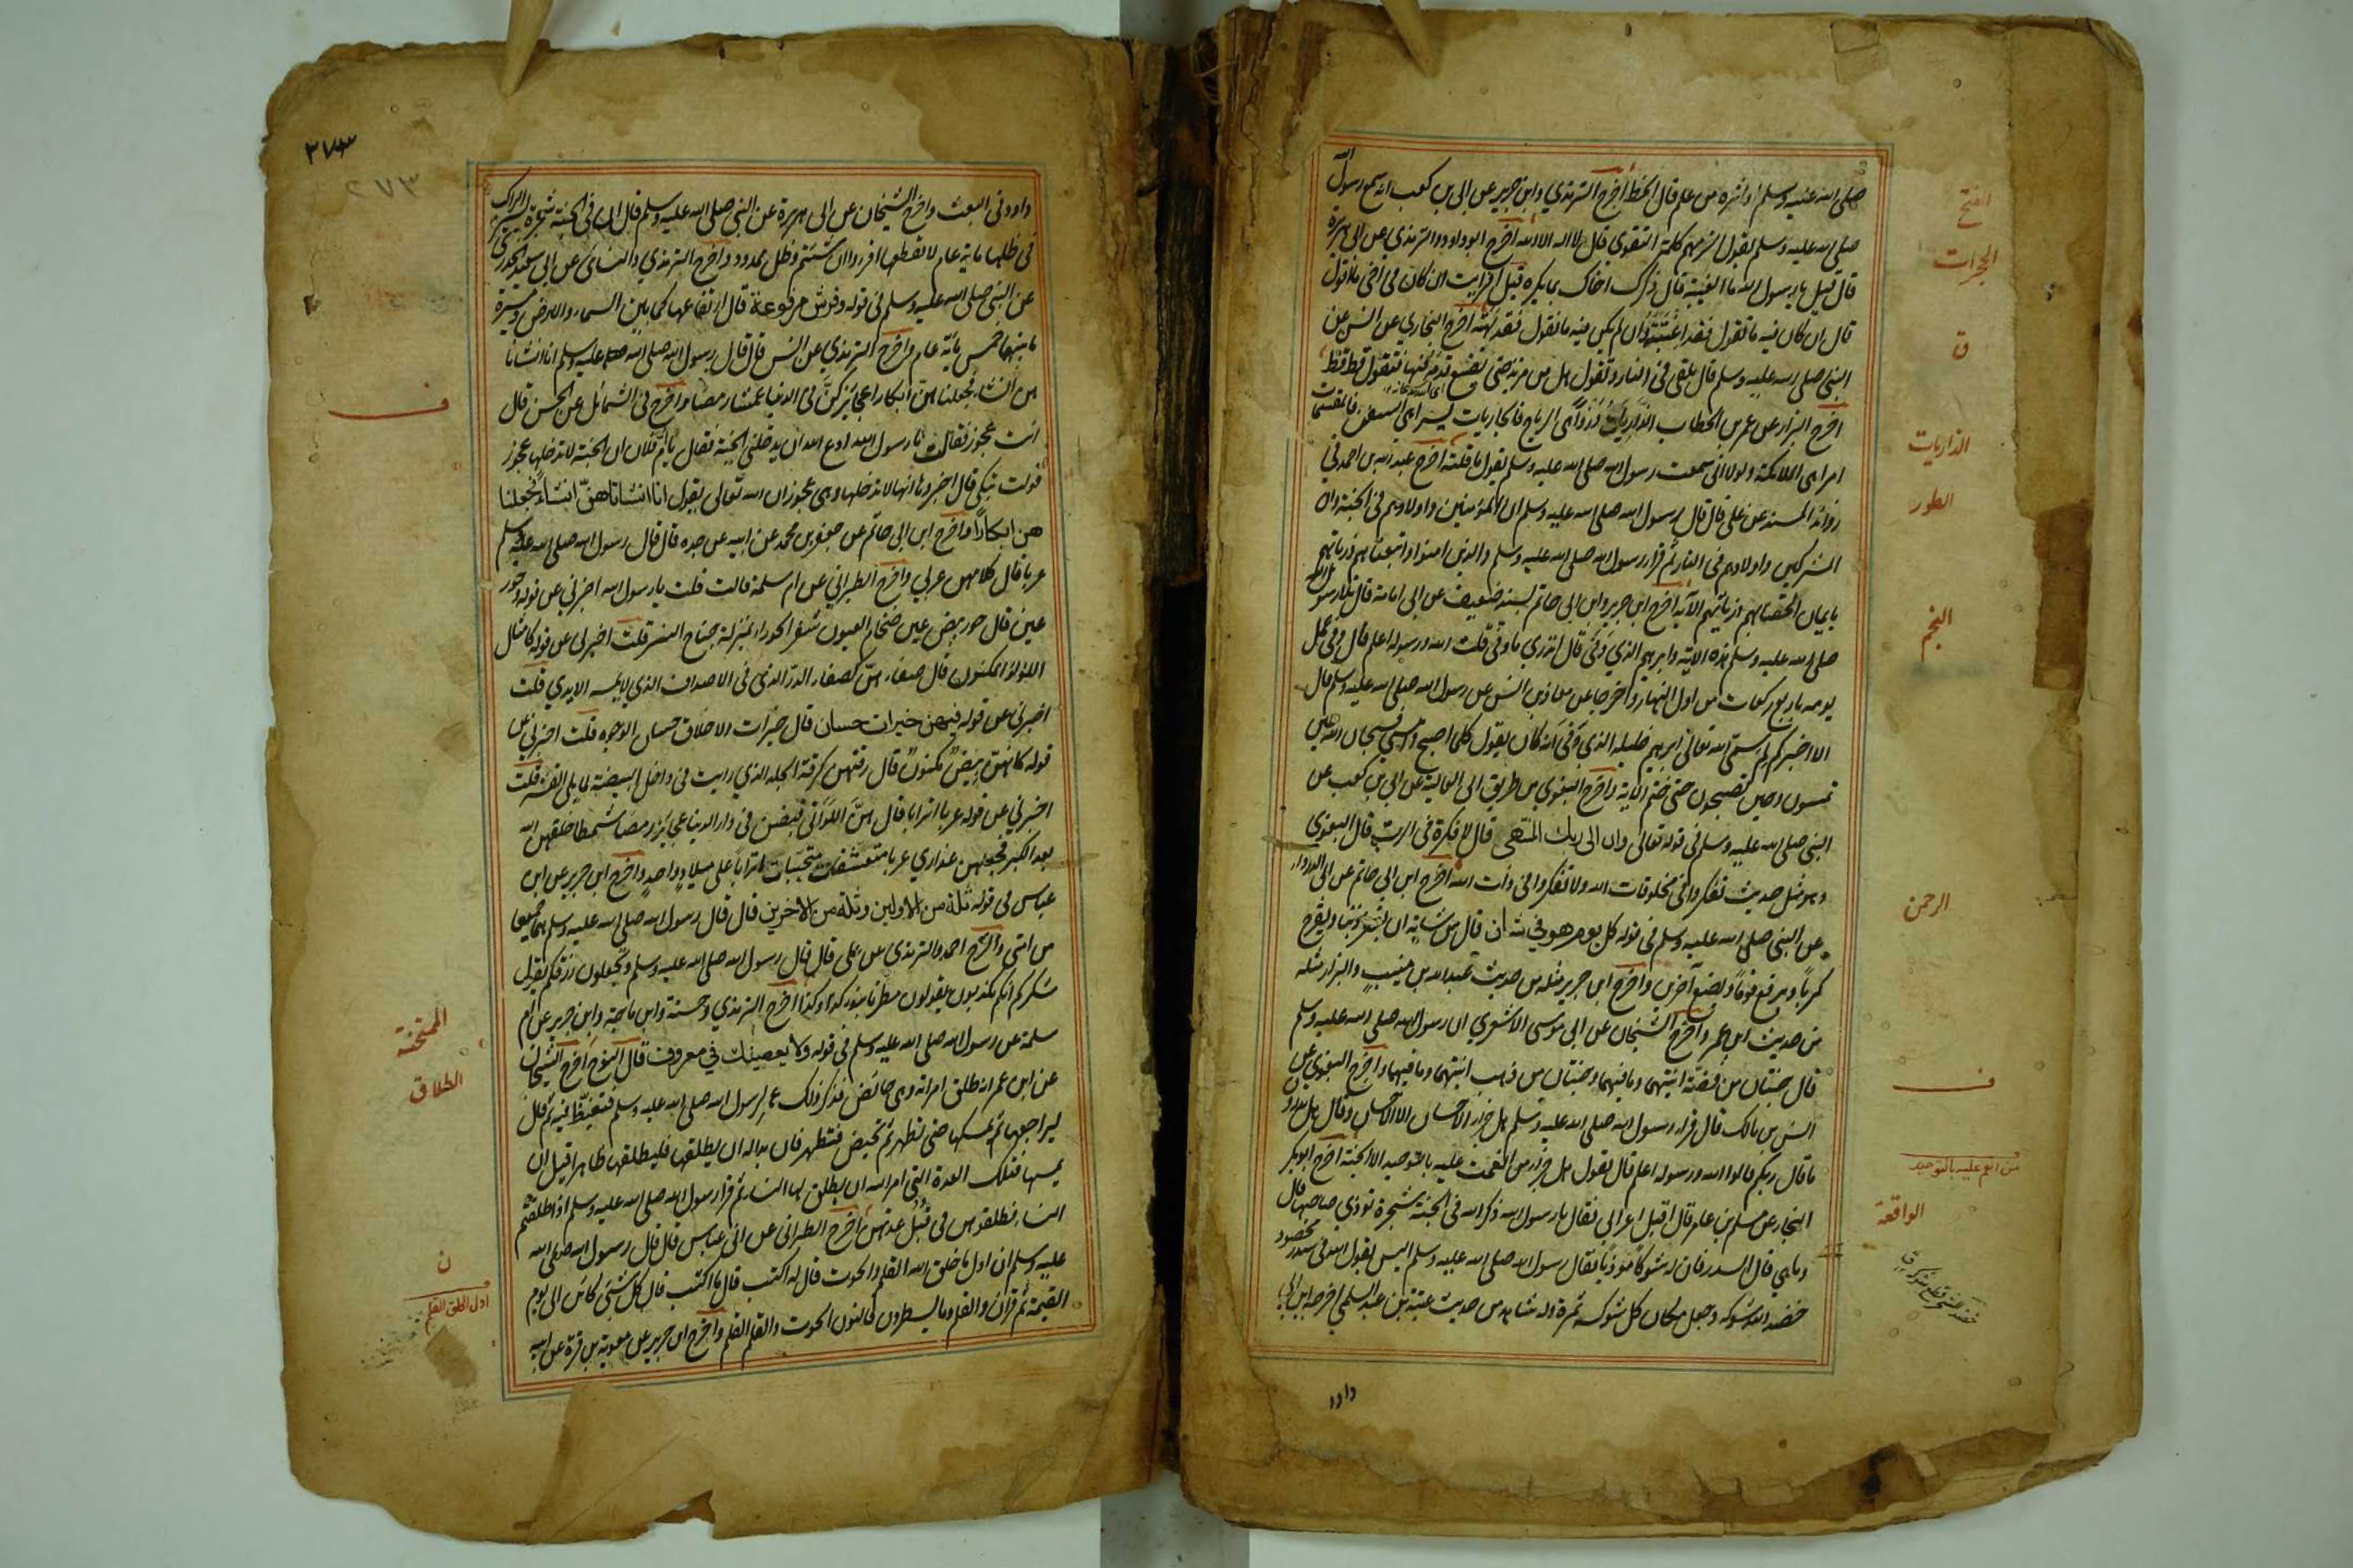 صلى الله عليه وسلم او اثره من علم قال الخط اخرج الترمذي وابن جرير عن ابى بن كعب انه سمع رسول الله
صلى الله عليه وسلم يقول الزمهم كلمة التقوى قال لا اله الا الله اخرج ابو داود والترمذي عن ابى هريرة
قال قيل يا رسول الله ما الغيبة قال ذكرك اخاك بما يكره قيل افرايت ان كان فى اخى ما اقول
قال ان كان فيه ما تقول فقد اغتبته وان لم يكن فيه ما تقول فقد بهته اخرج البخاري عن انس عن
النبى صلى الله عليه وسلم قال يلقى فى النار وتقول هل من مزيد حتى يضع قدمه فيها فتقول قط قط
اخرج البزار عن عمر بن الخطاب الذاريات ذروا هى الرياح فالجاريات يسرا هى السفن فالمقسمات
امرا هى الملائكة ولولا انى سمعت رسول الله صلى الله عليه وسلم يقول ما قلته اخرج عبد الله بن احمد فى
زوائد المسند عن على قال قال رسول الله صلى الله عليه وسلم ان المؤمنين واولادهم فى الجنة وان
المشركين واولادهم فى النار ثم قرا رسول الله صلى الله عليه وسلم والذين امنوا واتبعناهم ذرياتهم
بايمان الحقنا بهم ذرياتهم الآية اخرج ابن جرير وابن ابى حاتم بسند ضعيف عن ابى امامة قال تلا رسول الله
صلى الله عليه وسلم هذه الاية وابرهيم الذي وفى قال اتدري ما وفى قلت الله ورسوله اعلم قال وفى عمل
يومه باربع ركعات من اول النهار واخرجا عن معاذ بن انس عن رسول الله صلى الله عليه وسلم قال
الا اخبركم لم سمى الله تعالى ابرهيم خليله الذي وفى انه كان يقول كلما اصبح وامسى فسبحان الله حين
تمسون وحين تصبحون حتى ختم الآية واخرج البغوي من طريق ابى العالية عن ابى بن كعب عن
النبى صلى الله عليه وسلم فى قوله تعالى وان الى ربك المنتهى قال لا فكرة فى الرب قال البغوي
وهو مثل حديث تفكروا فى مخلوقات الله ولا تفكروا فى ذات الله اخرج ابن ابى حاتم عن ابى الدرداء
عن النبى صلى الله عليه وسلم فى قوله كل يوم هو فى شان قال من شانه ان يغفر ذنبا ويفرج
كربا ويرفع قوما ويضع آخرين واخرج ابن جرير مثله من حديث عبد الله بن منيب والبزار مثله
من حديث ابن عمر واخرج الشيخان عن ابى موسى الاشعري ان رسول الله صلى الله عليه وسلم
قال جنتان من فضة انيتهما وما فيهما وجنتان من ذهب انيتهما وما فيهما واخرج البغوي عن
انس بن مالك قال قرا رسول الله صلى الله عليه وسلم هل جزاء الاحسان الا الاحسان وقال هل تدرون
ما قال ربكم قالوا الله ورسوله اعلم قال يقول هل جزاء من انعمت عليه بالتوحيد الا الجنة اخرج ابو بكر
النجار عن سليم بن عامر قال اقبل اعرابى فقال يا رسول الله ذكر الله فى الجنة شجرة توذي صاحبها قال
وما هي قال السدر فان له شوكا موذيا فقال رسول الله صلى الله عليه وسلم اليس يقول الله فى سدر مخضود
خضد الله شوكه وجعل مكان كل شوكه ثمرة وله شاهد من حديث عتبة بن عبد السلمي اخرجه ابن ابى
داود
الفتح
الحجرات
ق
الذاريات
الطور
النجم
الرحمن
ف
من انعم عليه بالتوحيد
الواقعة
٢٧٣
٢٧٣
داود فى البعث واخرج الشيخان عن ابى هريرة عن النبى صلى الله عليه وسلم قال ان فى الجنة شجرة يسير الراكب
فى ظلها ماية عام لا يقطعها اقروا ان شئتم وظل ممدود واخرج الترمذي والنسائى عن ابى سعيد الخدري
عن النبى صلى الله عليه وسلم فى قوله وفرش مرفوعة قال ارتفاعها كما بين السماء والارض ومسيرة
ما بينهما خمس ماية عام واخرج الترمذي عن انس قال قال رسول الله صلى الله عليه وسلم انا انشانا
هن انشاء فجعلناهن ابكارا عجائز كن فى الدنيا عمشا رمصا واخرج فى الشمائل عن الحسن قال
اتت عجوز فقالت يا رسول الله ادع الله ان يدخلنى الجنة فقال يا ام فلان ان الجنة لا تدخلها عجوز
فولت تبكى قال اخبروها انها لا تدخلها وهى عجوز ان الله تعالى يقول انا انشاناهن انشاء فجعلنا
هن ابكارا واخرج ابن ابى حاتم عن جعفر بن محمد عن ابيه عن جده قال قال رسول الله صلى الله عليه وسلم
عربا قال كلامهن عربى واخرج الطبراني عن ام سلمة قالت قلت يا رسول الله اخبرني عن قوله وحور
عين قال حور بيض عين ضخام العيون شفر الحوراء بمنزلة جناح النسر قلت اخبرنى عن قوله كامثال
اللولو المكنون قال صفاءهن كصفاء الدر الذي فى الاصداف الذي لا يمسه الايدي قلت
اخبرنى عن قوله فيهن خيرات حسان قال خيرات الاخلاق حسان الوجوه قلت اخبرني عن
قوله كانهن بيض مكنون قال رقتهن كرقة الجلد الذي رايت فى داخل البيضة مما يلى القشر قلت
اخبرني عن قوله عربا اترابا قال هن اللواتى قبضن فى دار الدنيا عجائز رمصا شمطا خلقهن الله
بعد الكبر فجعلهن عذاري عربا متعشقات متحببات اترابا على ميلاد واحد واخرج ابن جرير عن ابن
عباس فى قوله ثلة من الاولين وثلة من الآخرين قال قال رسول الله صلى الله عليه وسلم هما جميعا
من امتى واخرج احمد والترمذى عن على قال قال رسول الله صلى الله عليه وسلم وتجعلون رزقكم يقول
شكركم انكم تكذبون يقولون مطرنا بنوء كذا وكذا اخرج الترمذي وحسنه وابن ماجة وابن جرير عن ام
سلمة عن رسول الله صلى الله عليه وسلم فى قوله ولا يعصينك في معروف قال النوح اخرج الشيخان
عن ابن عمر انه طلق امراته وهى حائض فذكر ذلك عمر لرسول الله صلى الله عليه وسلم فتغيظ فيه ثم قال
ليراجعها ثم يمسكها حتى تطهر ثم تحيض فتطهر فان بدا له ان يطلقها فليطلقها طاهرا قبل ان
يمسها فتلك العدة التى امر الله ان يطلق لها النساء ثم قرا رسول الله صلى الله عليه وسلم اذا طلقتم
النساء فطلقوهن فى قبل عدتهن اخرج الطبرانى عن ابن عباس قال قال رسول الله صلى الله
عليه وسلم ان اول ما خلق الله القلم والحوت قال له اكتب قال ما اكتب قال كل شيء كائن الى يوم
القيمة ثم قرا ن والقلم وما يسطرون فالنون الحوت والقلم القلم واخرج ابن جرير عن معوية بن قرة عن ابيه
ف
الممتحنة
الطلاق
ن
اول الخلق القلم